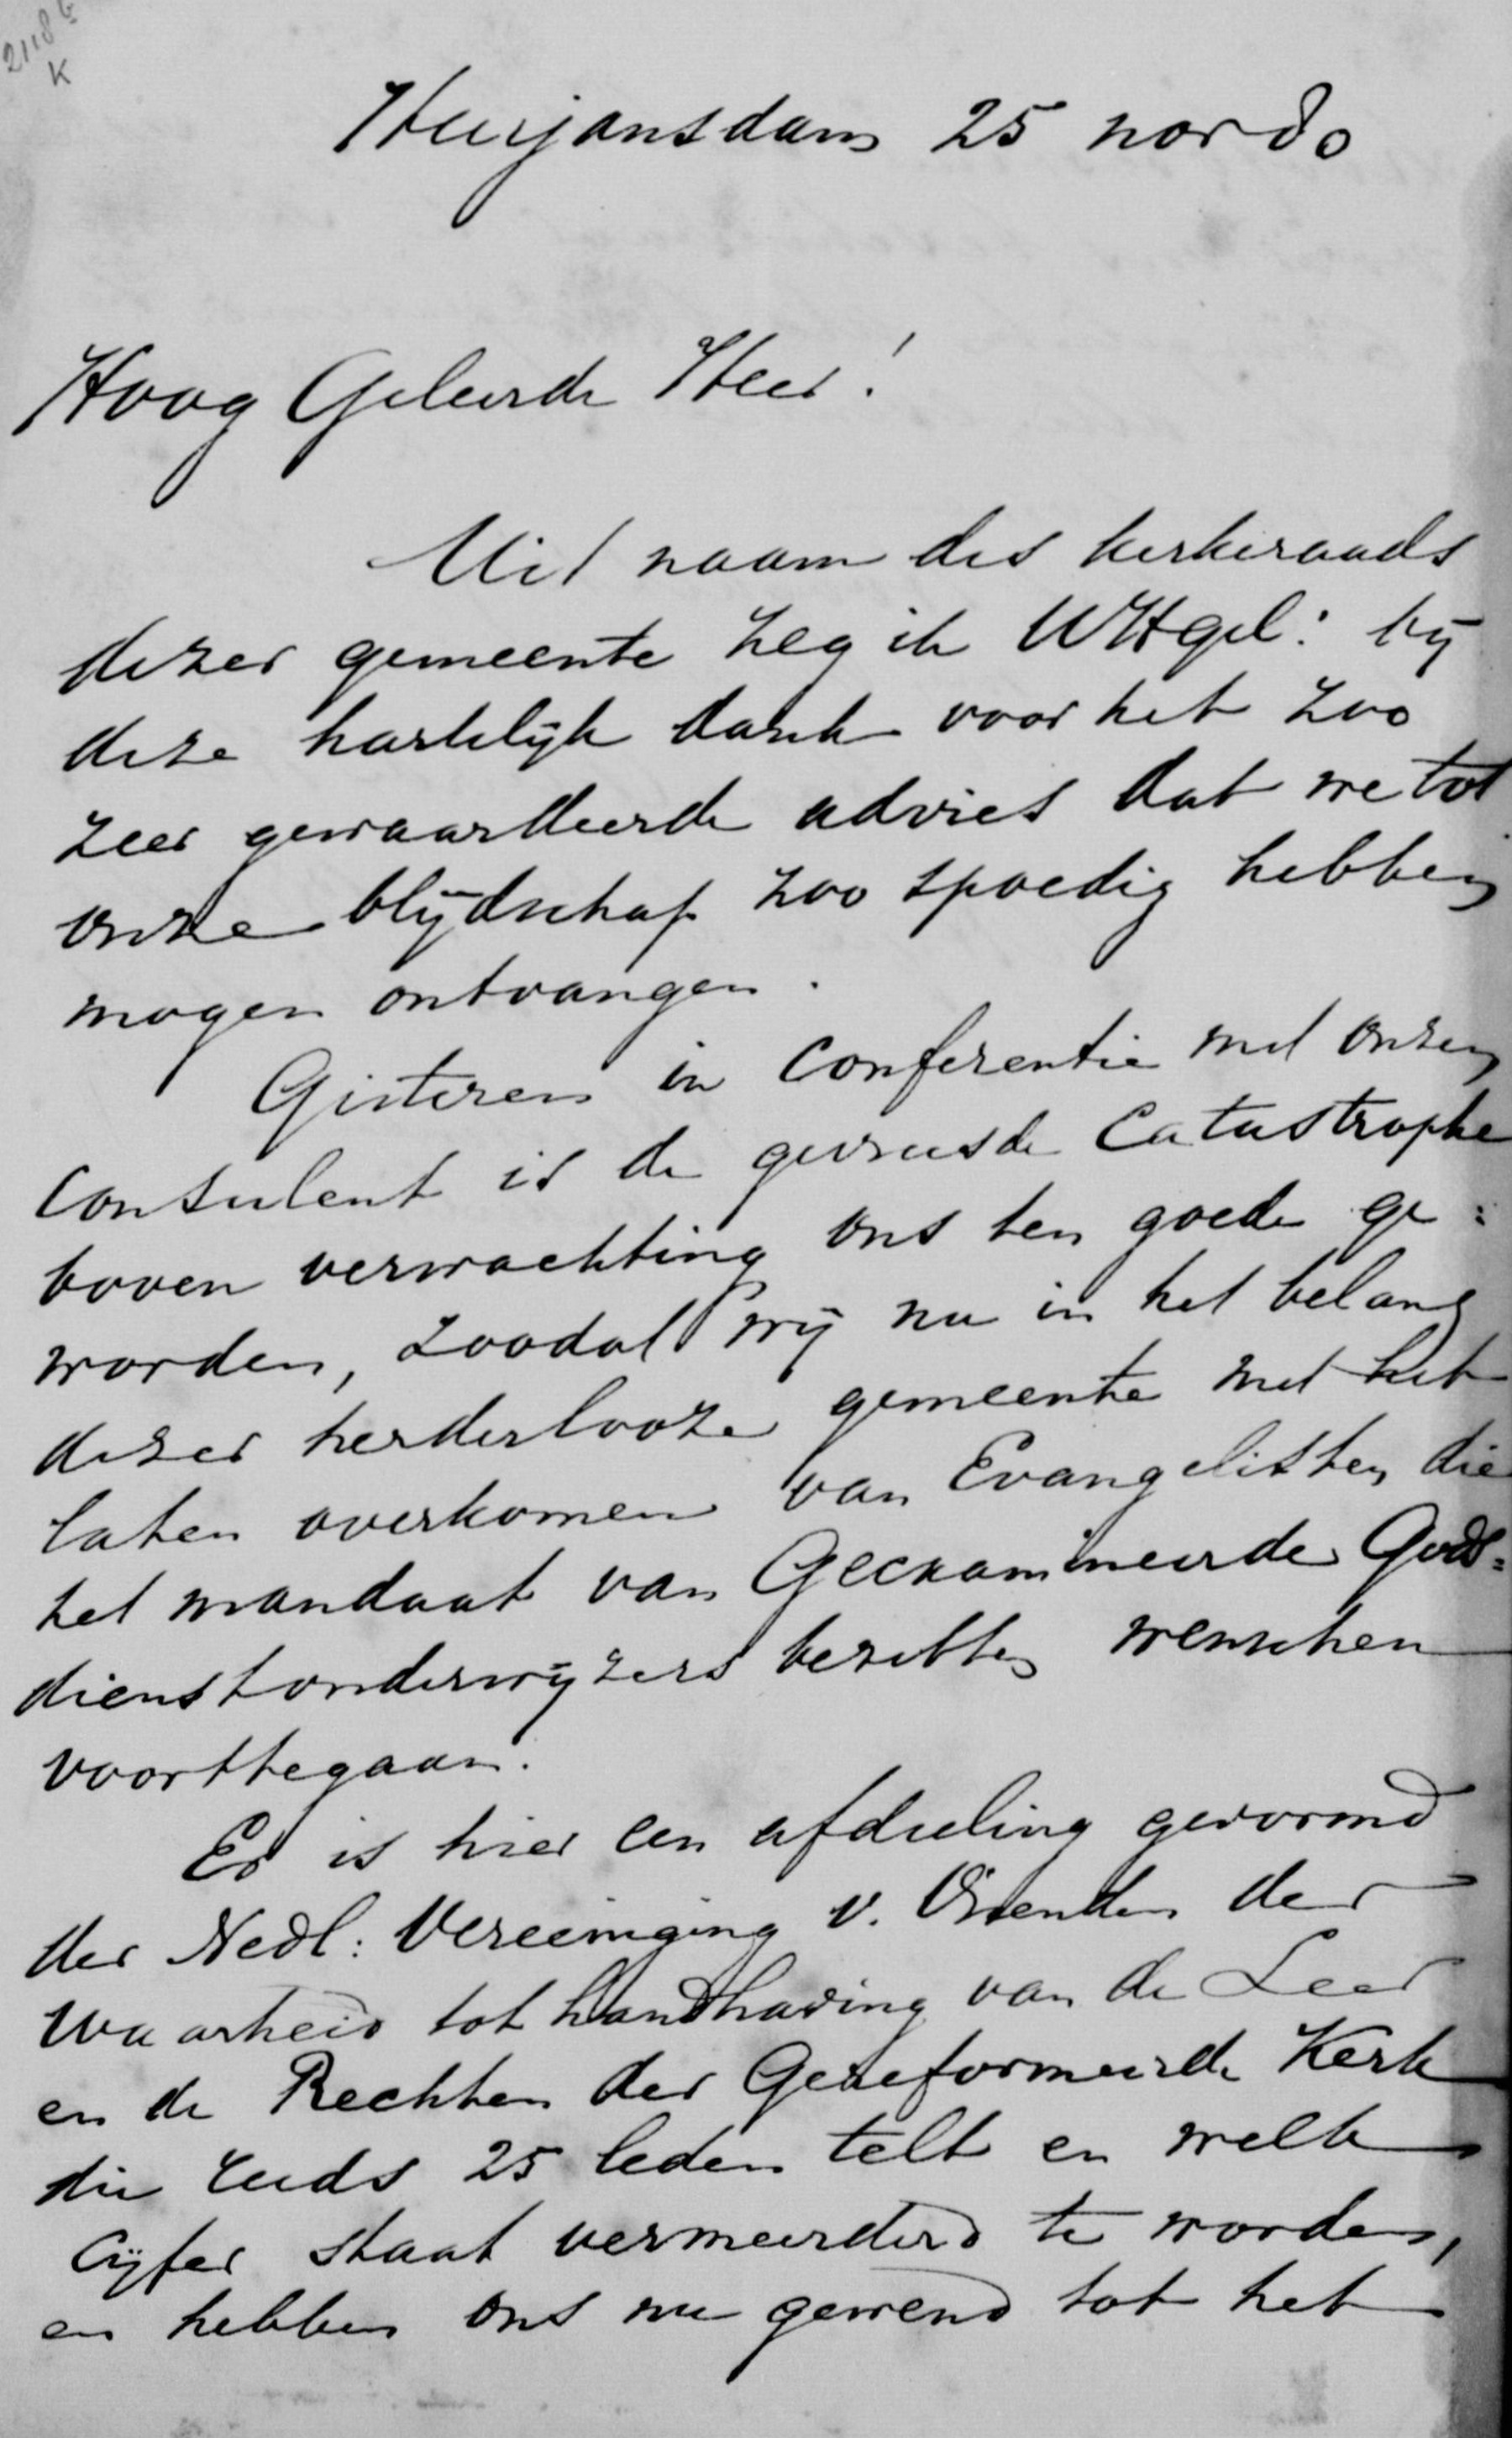 2118 b
K
Heerjansdam 25 nov 80
Hoog Geleerde Heer!
Uit naam des kerkeraads
dezer gemeente zeg ik UHgel: bij
deze hartelijk dank voor het zoo
zeer gewaardeerde advies dat we tot
onze blijdschap zoo spoedig hebben
mogen ontvangen.
Gisteren in Conferentie met onzen
Consulent is de gevreesde Catastrophe
boven verwachting ons ten goede ge:
worden, zoodat wij nu in het belang
dezer herderlooze gemeente met het
laten overkomen van Evangelisten die
het mandaat van Geexamineerde Gods=
dienstonderwijzers bezitten wenschen
voorttegaan.
Er is hier een afdeeling gevormd
der Nedl: Vereeniging v. Vrienden der
Waarheid tot handhaving van de Leer
en de Rechten der Gereformeerde Kerk
die reeds 25 leden telt en welk
Cijfer staat vermeerderd te worden,
en hebben ons nu gewend tot het